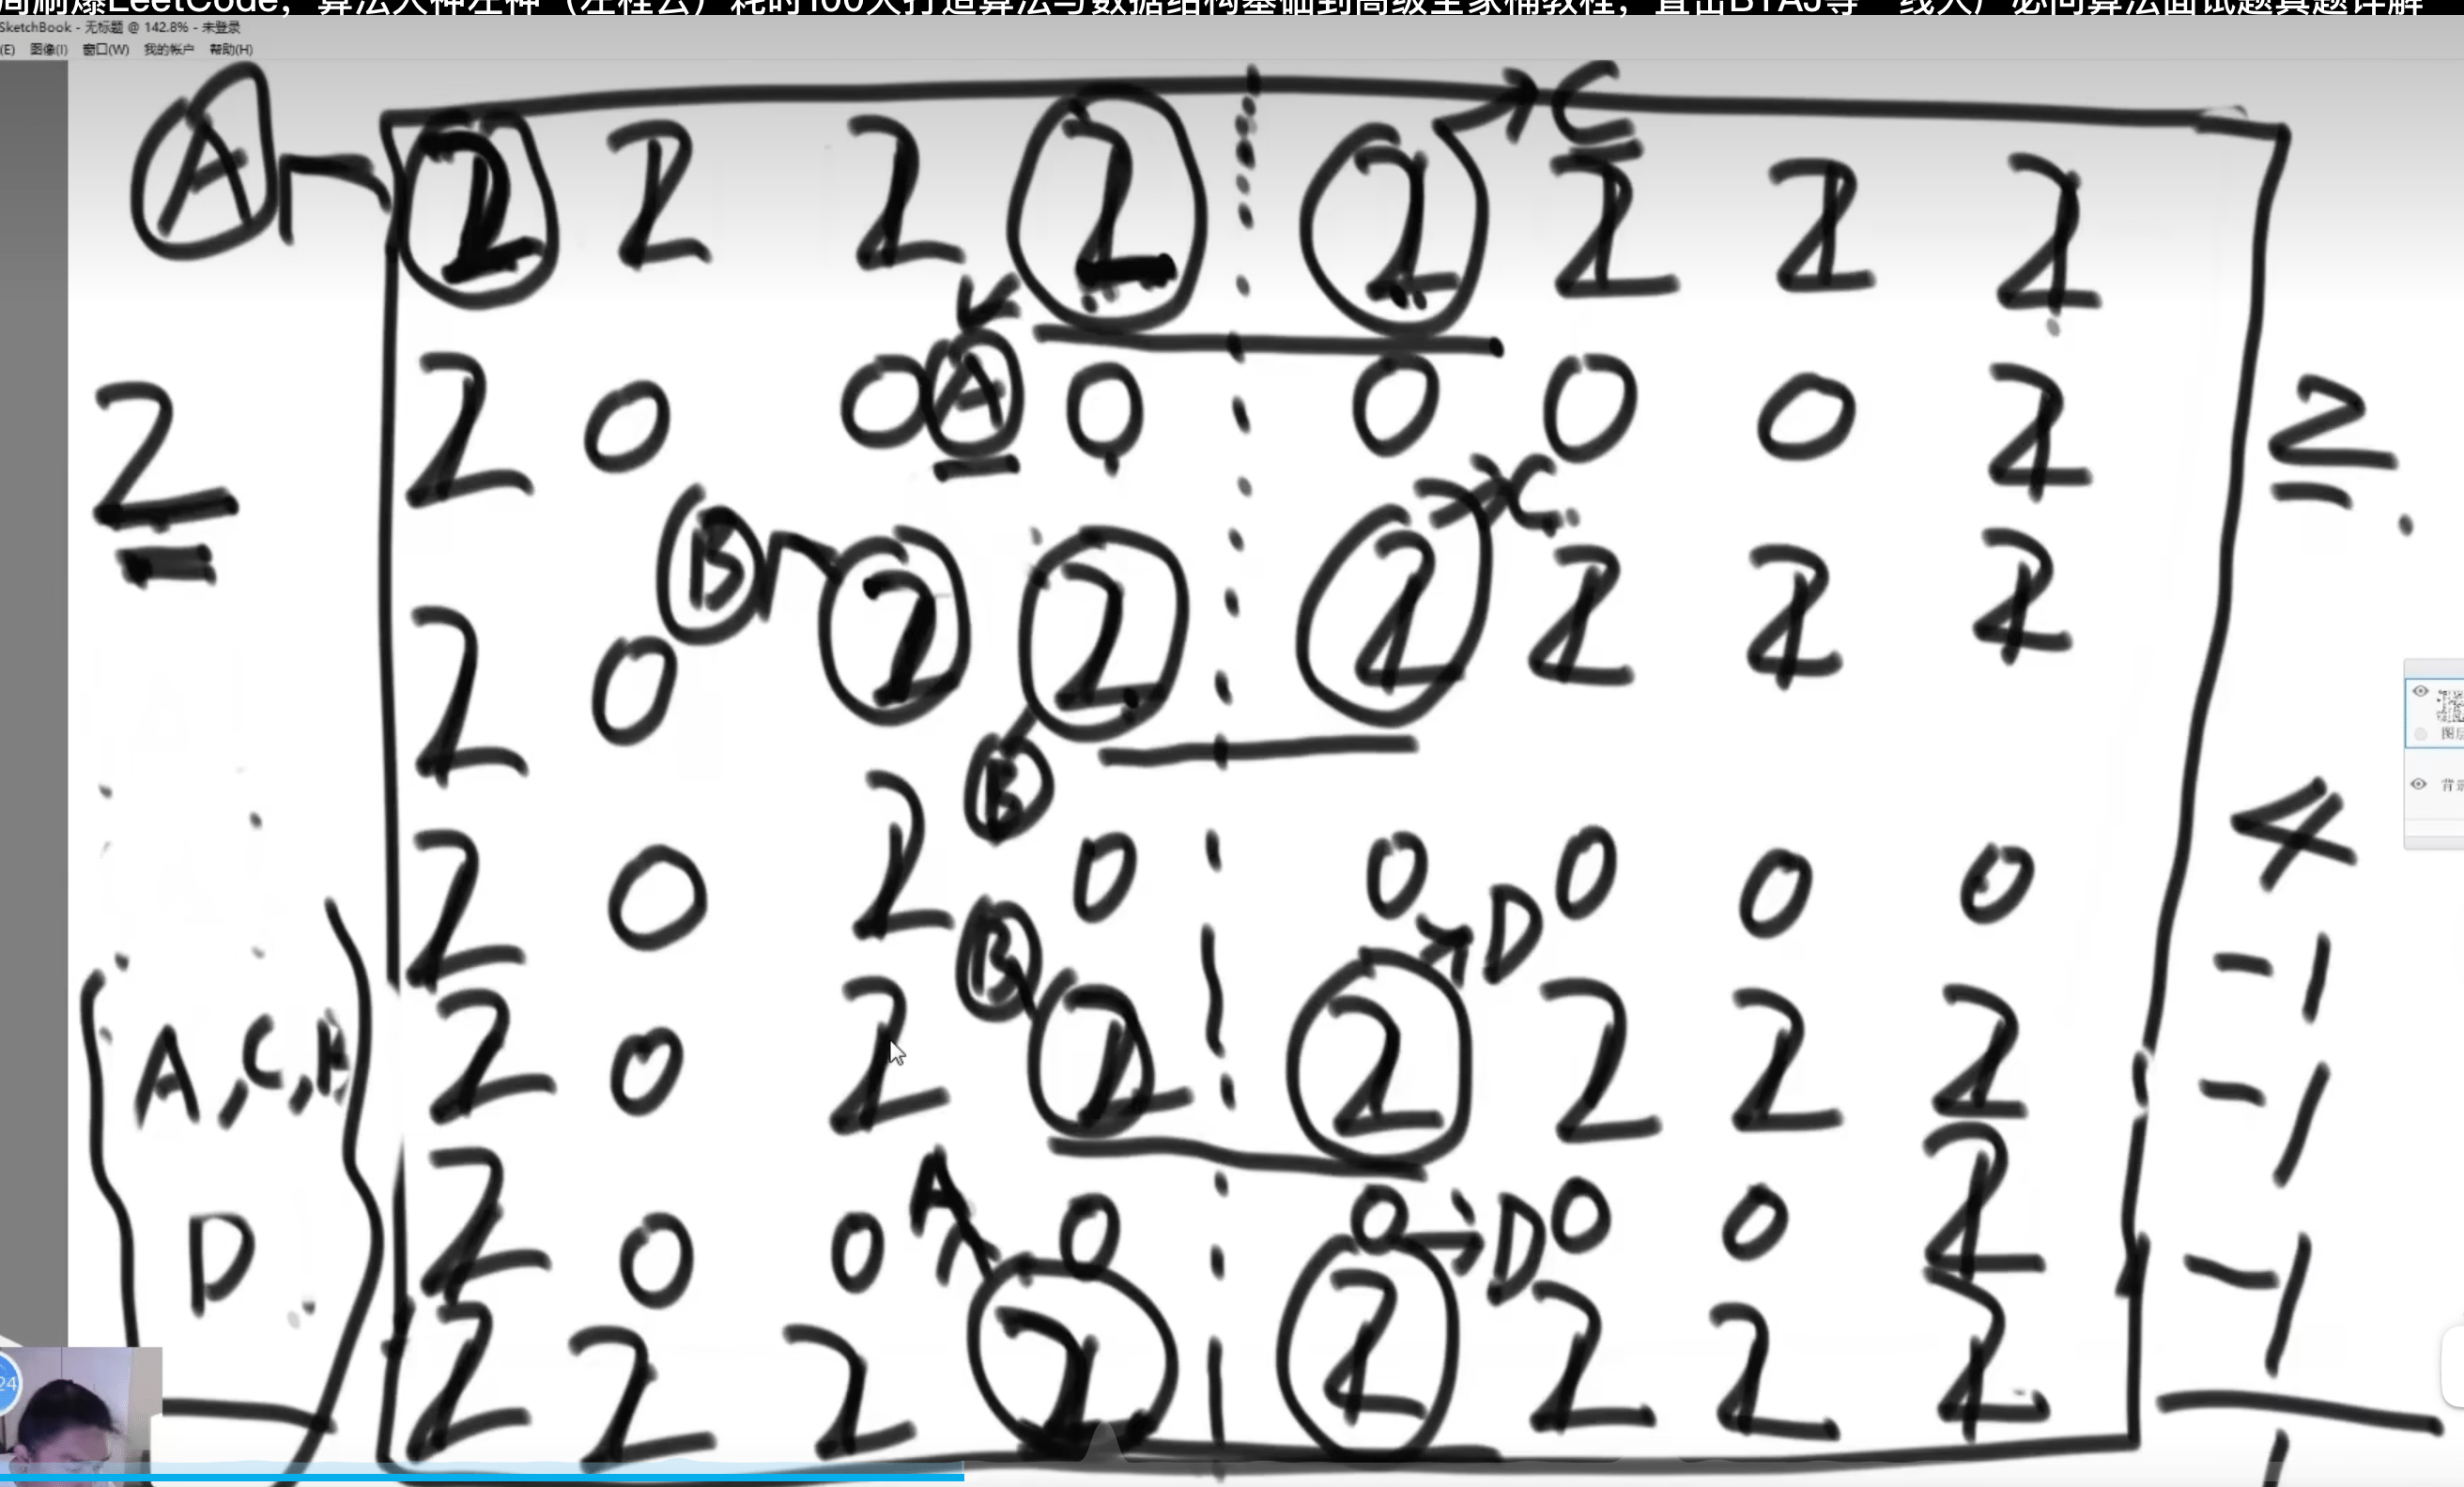 周刷爆LeetCode，算法大神左神（左程云）耗时100天打造算法与数据结构基础到高级全家桶教程，直击BTAJ等一线大厂必问算法面试题真题详解
SketchBook - 无标题 @ 142.8% - 未登录
(E) 图像(I) 窗口(W) 我的帐户 帮助(H)
A 2 2 2 2 2 C 2 2 2
2 2 0 0 A 0 0 0 0 2 2
2 0 B 2 2 2 C 2 2 2
B
2 0 2 0 0 0 0 0 4
B D -1
A, C, 2 0 2 2 2 2 2 2 -1
D 2 0 0 A 0 0 D 0 0 2 -1
2 2 2 2 2 2 2 2
1
24